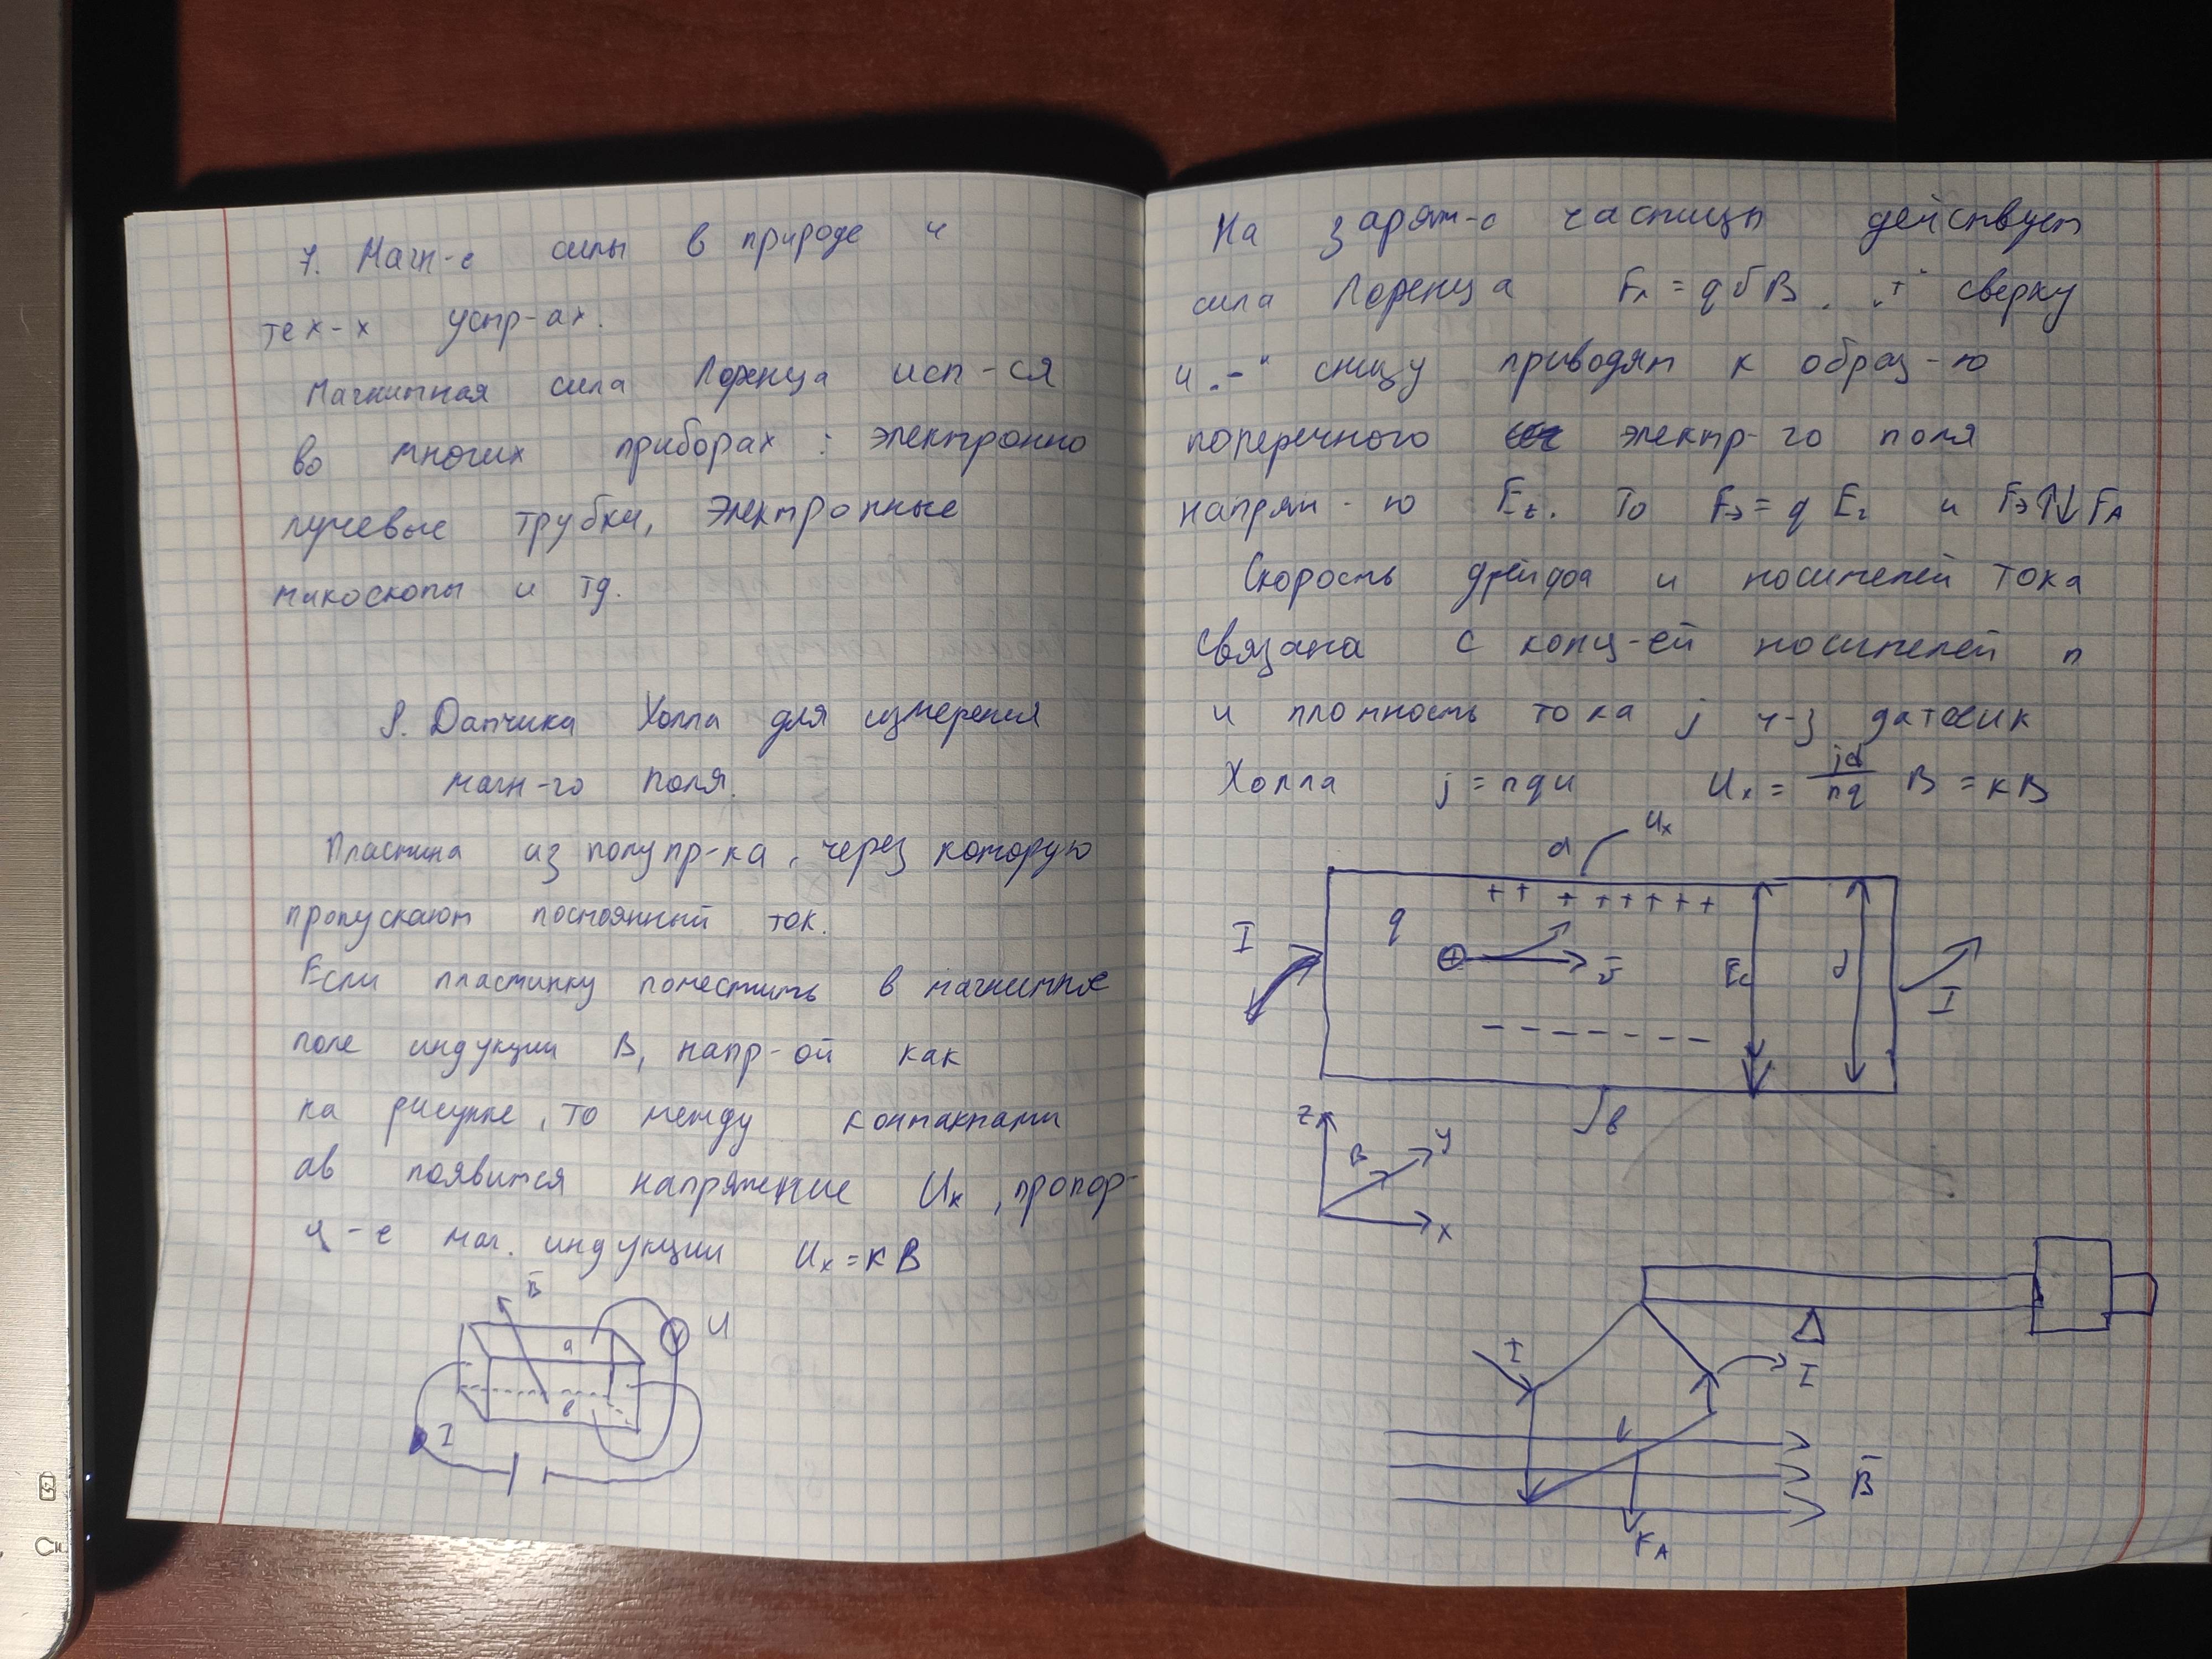 7. Магн-е силы в природе и
тех-х устр-ах.
Магнитная сила Лоренца исп-ся
во многих приборах: электронно
лучевые трубки, электронные
микоскопы и тд.
8. Датчика Холла для измерения
магн-го поля.
Пластина из полупр-ка, через которую
пропускают постоянный ток.
Если пластинку поместить в магнитное
поле индукции B, напр-ой как
на рисунке, то между контактами
ав появится напряжение Uх, пропор-
ц-е маг. индукции Uх = кB
B̄
U
а
в
I
На заряж-е частицы действует
сила Лоренца Fл = qυB. „+" сверху
и „-" снизу приводят к образ-ю
поперечного электр-го поля
напряж-ю Eг. То Fэ = q Eг и Fэ↑↓Fл
Скорость дрейфа и носителей тока
связана с конц-ей носителей n
и плотность тока j ч-з датчик
Холла j = nqu Uх = jd/nq B = кB
а Uх
+ + + + + + + +
q
I
⊕ ῡ Eг d
I
- - - - - - -
в
z
B y
x
I
I
B̄
FА